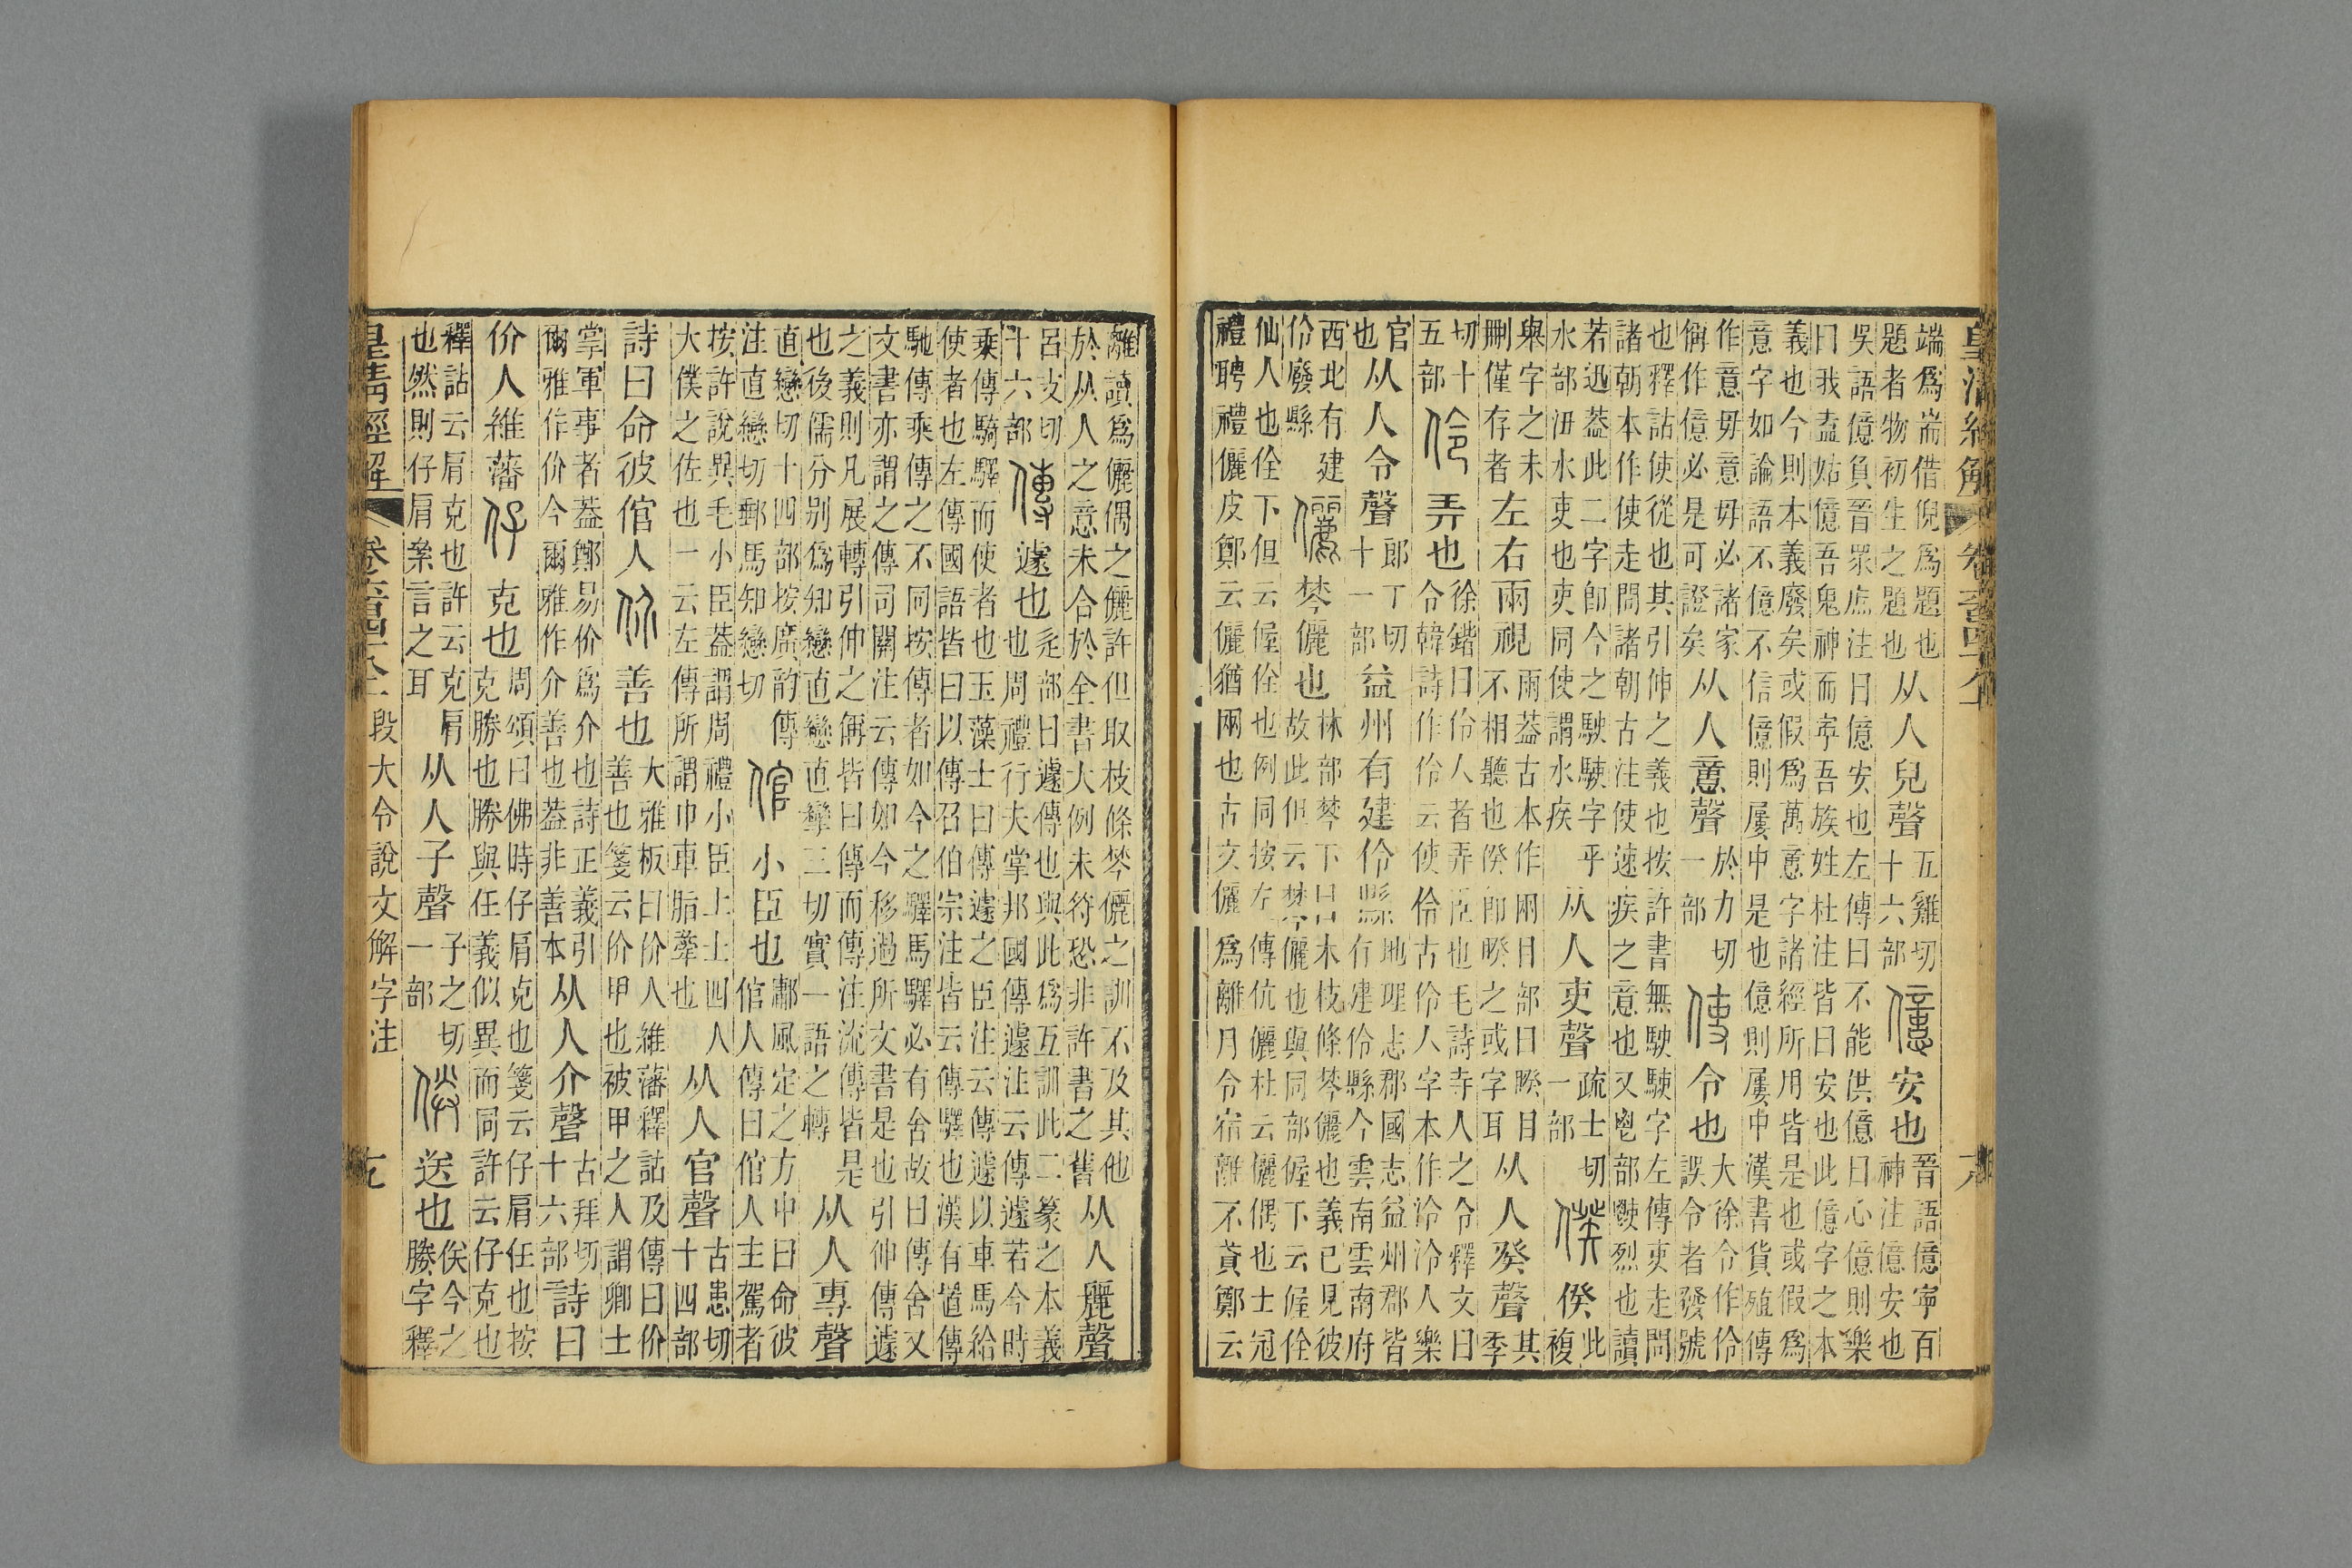 端為耑借倪為題也題者物初生之題也从人兒聲五雞切十六部億安也晉語億寧百神注億安也
吳語億負晉眾庶注曰億安也左傳曰不能供億曰心億則樂曰我盍姑億吾鬼神而寧吾族姓杜注皆曰安也此億字之本
義也今則本義廢矣或假為萬意字諸經所用皆是也或假為意字如論語不億不信億則屢中是也億則屢中漢書貨殖傳
作意毋意毋必諸家偁作億必是可證矣从人意聲於力切一部使令也大徐令作伶誤令者發號
也釋詁使從也其引伸之義也按許書無駛駛字左傳吏走問諸朝本作使走問諸朝古注使速疾之意也又鬯部烈也讀
若迅葢此二字卽今之駛駛字乎水部水吏也吏同使謂水疾从人吏聲疏士切一部㑧㑧此複
舉字之未刪僅存者左右兩視㒳葢古本作㒳目部曰睽目不相聽也㑧卽睽之或字耳从人癸聲其季
切十五部伶弄也徐鍇曰伶人者弄臣也毛詩寺人之令釋文曰令韓詩作伶云使伶古伶人字本作泠泠人樂
官也从人令聲郎丁切十一部益州有建伶縣地理志郡國志益州郡皆有建伶縣今雲南雲南府
西北有建伶廢縣儷棽儷也林部棽下曰木枝條棽儷也義已見彼故此但云棽儷也與同部偓下云偓佺
仙人也佺下但云偓佺也例同按左傳伉儷杜云儷偶也士冠禮聘禮儷皮鄭云儷猶兩也古文儷為離月令宿離不貣鄭云
離讀為儷偶之儷許但取枝條棽儷之訓不及其他於从人之意未合於全書大例未符恐非許書之舊从人麗聲
呂支切十六部傳遽也辵部曰遽傳也與此為互訓此二篆之本義也周禮行夫掌邦國傳遽注云傳遽若今時
乘傳騎驛而使者也玉藻士曰傳遽之臣注云傳遽以車馬給使者也左傳國語皆曰以傳召伯宗注皆云傳驛也漢有置傳
馳傳乘傳之不同按傳者如今之驛馬驛必有舍故曰傳舍又文書亦謂之傳司關注云傳如今移過所文書是也引伸傳遽
之義則凡展轉引伸之偁皆曰傳而傳注流傳皆是也後儒分別為知戀直戀直攣三切實一語之轉从人專聲
直戀切十四部按廣韵傳注直戀切郵馬知戀切倌小臣也鄘風定之方中曰命彼倌人傳曰倌人主駕者
按許說異毛小臣葢謂周禮小臣上士四人大僕之佐也一云左傳所謂巾車脂舝也从人官聲古患切十四部
詩曰命彼倌人价善也大雅板曰价人維藩釋詁及傳曰价善也箋云价甲也被甲之人謂卿士
掌軍事者葢鄭易价為介也詩正義引爾雅作价今爾雅作介善也葢非善本从人介聲古拜切十六部詩曰
价人維藩仔克也周頌曰佛時仔肩克也箋云仔肩任也按克勝也勝與任義似異而同許云仔克也
釋詁云肩克也許云克肩也然則仔肩絫言之耳从人子聲子之切一部㑞送也㑞今之勝字釋
皇清經解 段大令說文解字注